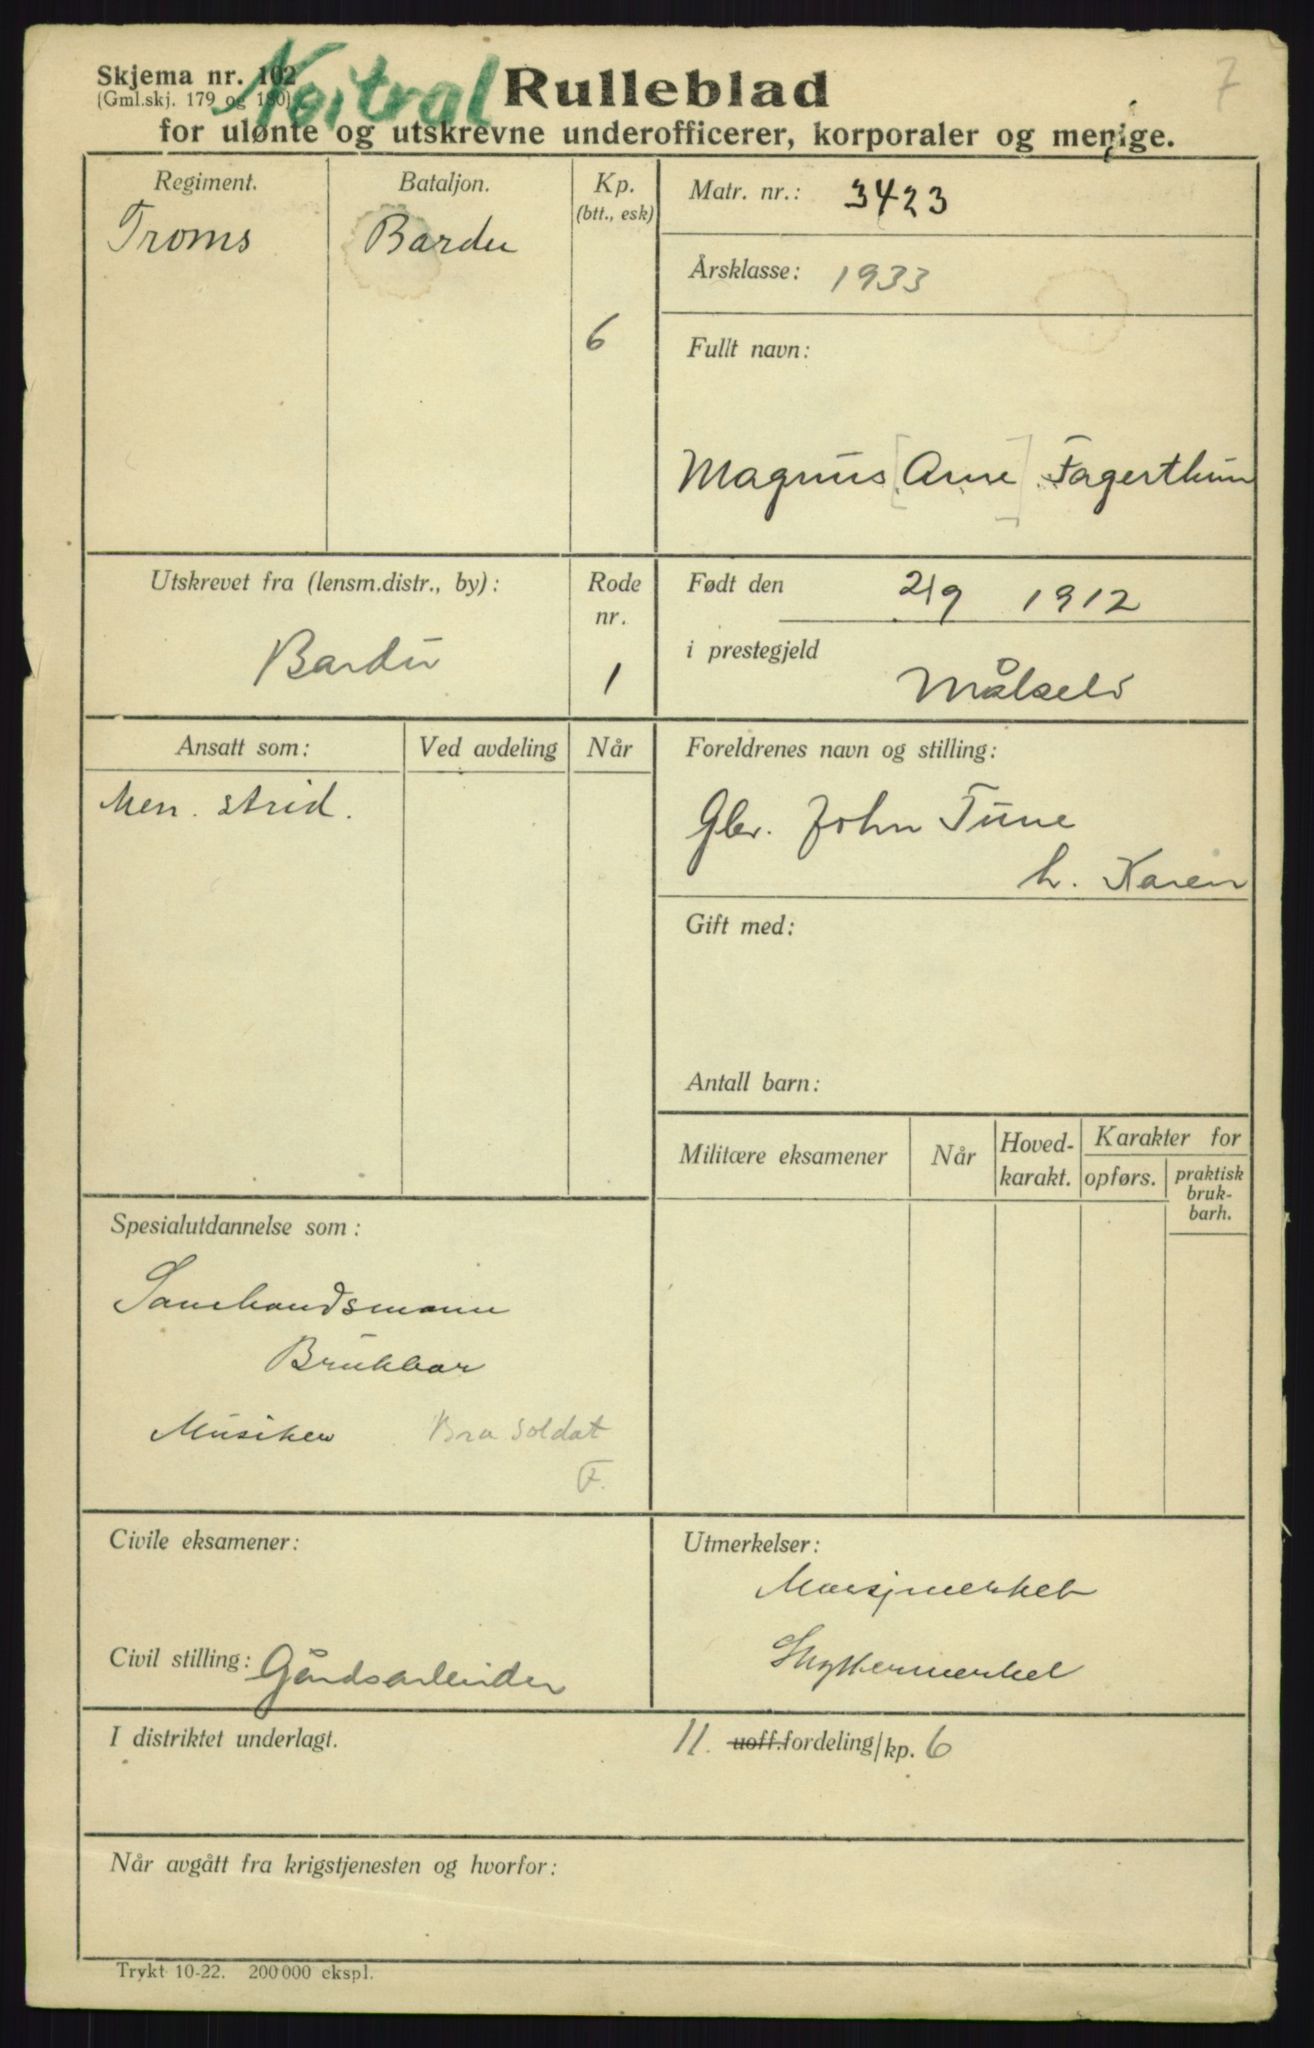 Nøitral
7
Skjema nr. 102
(Gml.skj. 179 og 180)
Rulleblad
for ulønte og utskrevne underofficerer, korporaler og menige.
Regiment.
Troms
Bataljon.
Bardu
Kp.
(btt., esk)
6
Matr. nr.: 3423
Årsklasse: 1933
Fullt navn:
Magnus [Arne] Fagerthun
Utskrevet fra (lensm.distr., by):
Bardu
Rode
nr.
1
Født den 2/9 1912
i prestegjeld
Målselv
Ansatt som:
Ved avdeling
Når
Men. strid.
Foreldrenes navn og stilling:
Gbr. John Tune
h. Karen
Gift med:
Antall barn:
Militære eksamener
Når
Hoved-
karakt.
Karakter for
opførs.
praktisk
bruk-
barh.
Spesialutdannelse som:
Sambandsmann
Brukbar
Musiker Bra soldat
F.
Civile eksamener:
Civil stilling: Gårdsarbeider
Utmerkelser:
Marsjmerket
Skyttermerket
I distriktet underlagt. 11. uoff.fordeling/kp. 6
Når avgått fra krigstjenesten og hvorfor:
Trykt 10-22. 200 000 ekspl.